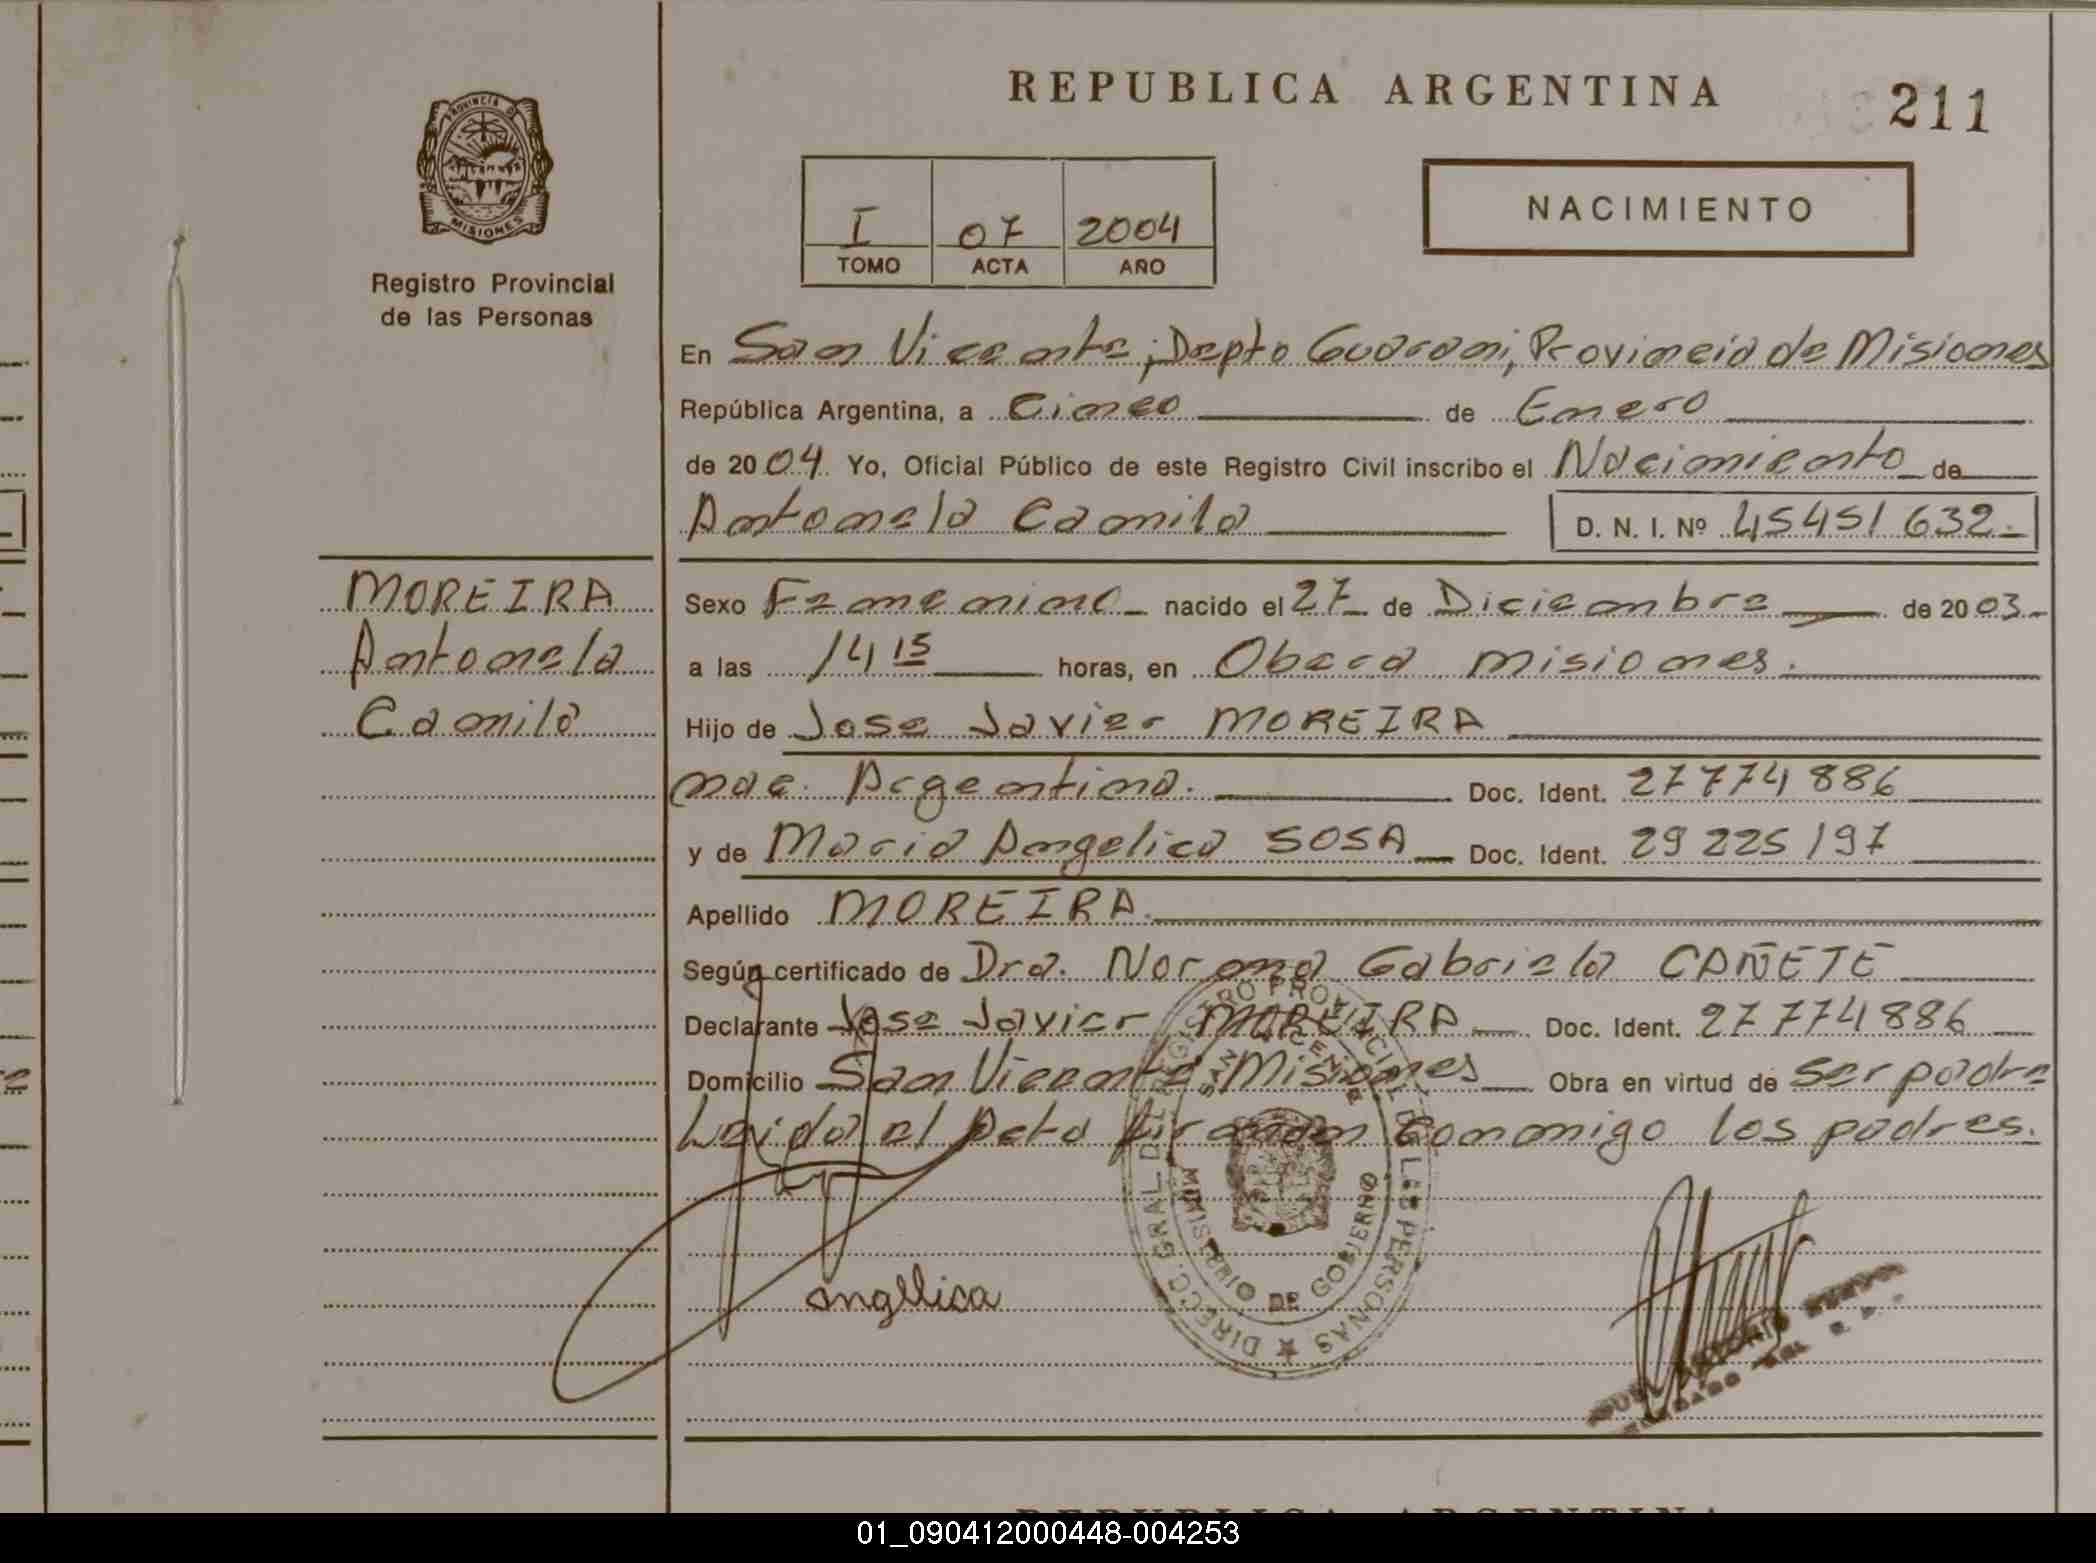 REPUBLICA ARGENTINA
211
PROVINCIA DE MISIONES
Registro Provincial
de las Personas
I 07 2004
TOMO ACTA AÑO
NACIMIENTO
En San Vicente, Depto Guarani, Provincia de Misiones
República Argentina, a Cinco de Enero
de 2004. Yo, Oficial Público de este Registro Civil inscribo el Nacimiento de
Antonela Camila D. N. I. Nº 45451632.
MOREIRA
Antonela
Camila
Sexo Femenino nacido el 27 de Diciembre de 2003
a las 14 15 horas, en Obera Misiones.
Hijo de Jose Javier MOREIRA
nac. Argentina. Doc. Ident. 27774886
y de Maria Angelica SOSA Doc. Ident. 29225197
Apellido MOREIRA
Según certificado de Dra. Norma Gabriela CAÑETE
Declarante Jose Javier MOREIRA Doc. Ident. 27774886
Domicilio San Vicente Misiones Obra en virtud de ser padre
Leida el Acta firman conmigo los padres.
DIRECC. GRAL DEL REGISTRO PROVINCIAL DE LAS PERSONAS
SAN VICENTE
MINISTERIO DE GOBIERNO
angelica
ANTONIO
01_090412000448-004253